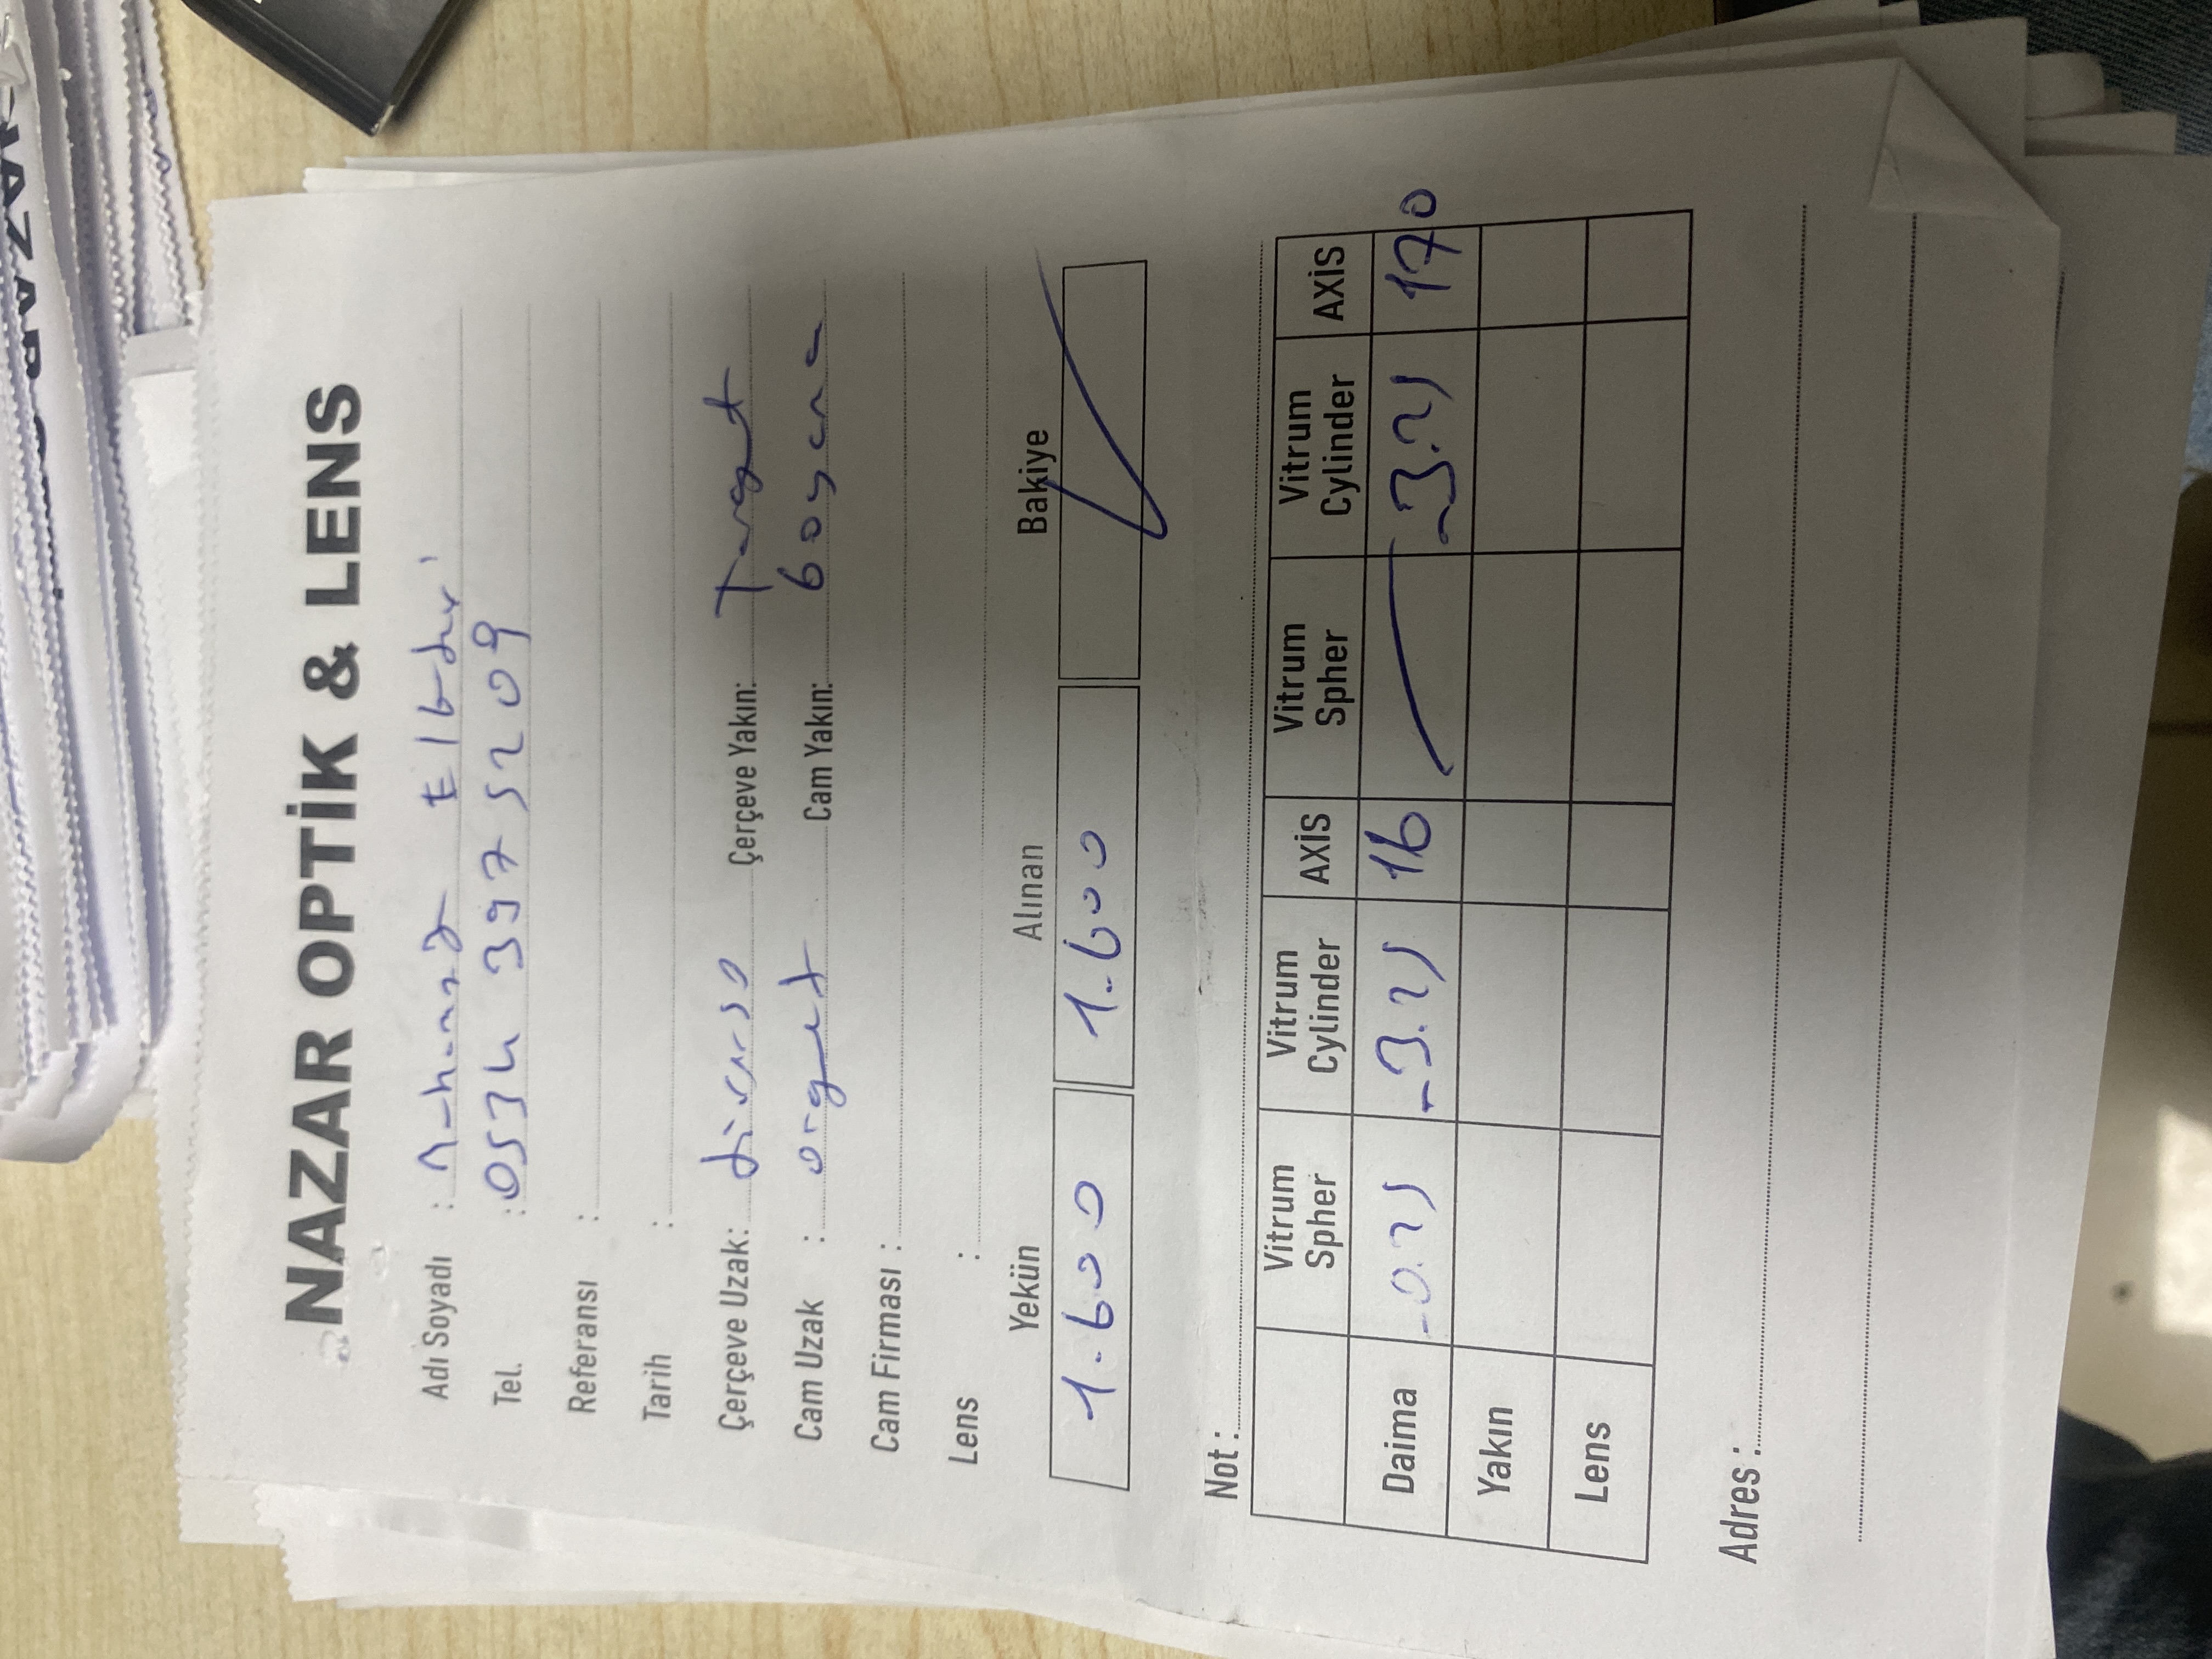 NAZAR OPTİK & LENS
Adı Soyadı :
Tel. : 0534 397 5209
Referansı :
Tarih :
Çerçeve Uzak: diverso Çerçeve Yakın: Target
Cam Uzak : Cam Yakın: boyama
Cam Firması :
Lens :
Yekün Alınan Bakiye
1.600 1.600
Not :
Vitrum Spher Vitrum Cylinder AXİS Vitrum Spher Vitrum Cylinder AXİS
Daima -0.25 -3.25 16 -3.25 170
Yakın
Lens
Adres :